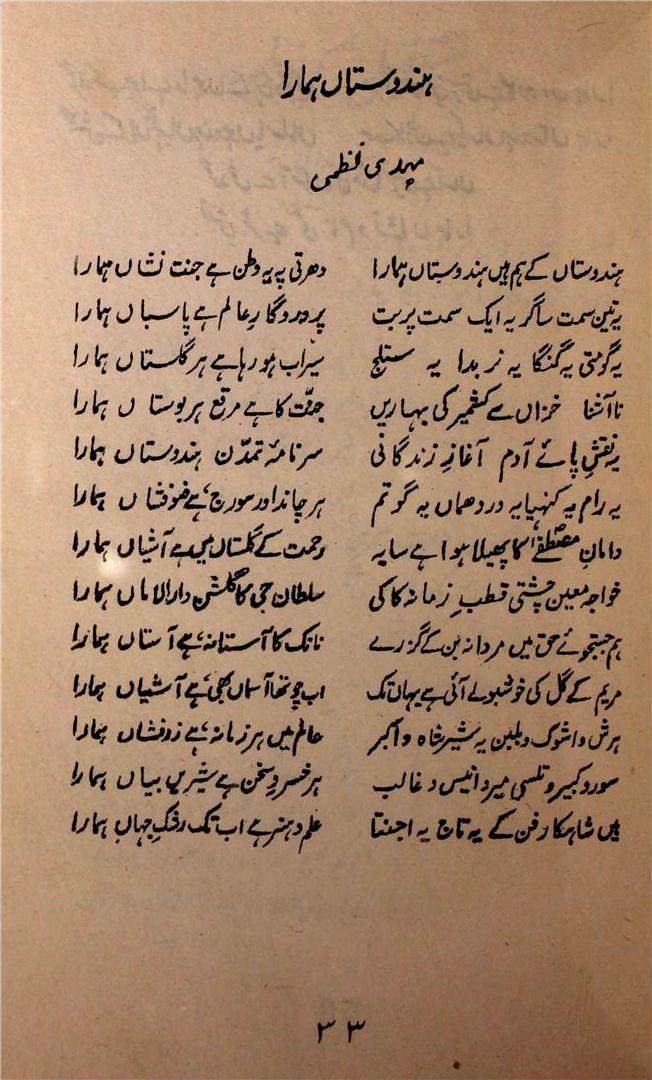 ہندوستاں ہمارا
مہدی نظمی
ہندوستاں کے ہم ہیں ہندوستاں ہمارا دھرتی پہ یہ وطن ہے جنت نشاں ہمارا
یہ تین سمت ساگر یہ ایک سمت پربت پروردگارِ عالم ہے پاسباں ہمارا
یہ گومتی یہ گنگا یہ نربدا یہ ستلج سیراب ہو رہا ہے ہر گلستاں ہمارا
ناآشنا خزاں سے کشمیر کی بہاریں جنّت کا ہے مرقع ہر بوستاں ہمارا
یہ نقشِ پائے آدم آغازِ زندگانی سرنامۂ تمدّن ہندوستاں ہمارا
یہ رام یہ کنہیا یہ وردھماں یہ گوتم ہر چاند اور سورج ہے ضوفشاں ہمارا
دامانِ مصطفےٰؐ کا پھیلا ہوا ہے سایہ رحمت کے گلستاں میں ہے آشیاں ہمارا
خواجہ معین چشتی قطبِ زمانہ کاکی سلطان جی کا گلشن دارالاماں ہمارا
ہم جستجوئے حق میں مردانہ بن کے گزرے نانک کا آستانہ ہے آستاں ہمارا
مریم کے گل کی خوشبو لے آئی ہے یہاں تک اب چوتھا آسماں بھی ہے آشیاں ہمارا
ہرش و اشوک و بلبن یہ شیر شاہ و اکبر عالم میں ہر زمانہ ہے زرفشاں ہمارا
سور و کبیر و تلسی میر و انیس و غالب ہر خسروِ سخن ہے شیریں بیاں ہمارا
ہیں شاہکار فن کے یہ تاج یہ اجنتا علم و ہنر ہے اب تک رشکِ جہاں ہمارا
۳۳